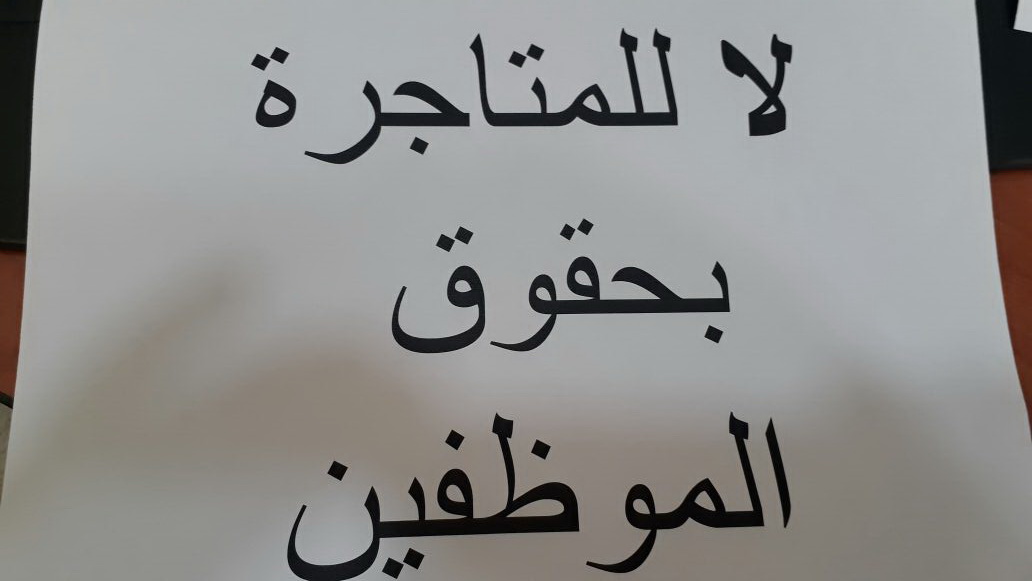 لا للمتاجرة
بحقوق
الموظفين